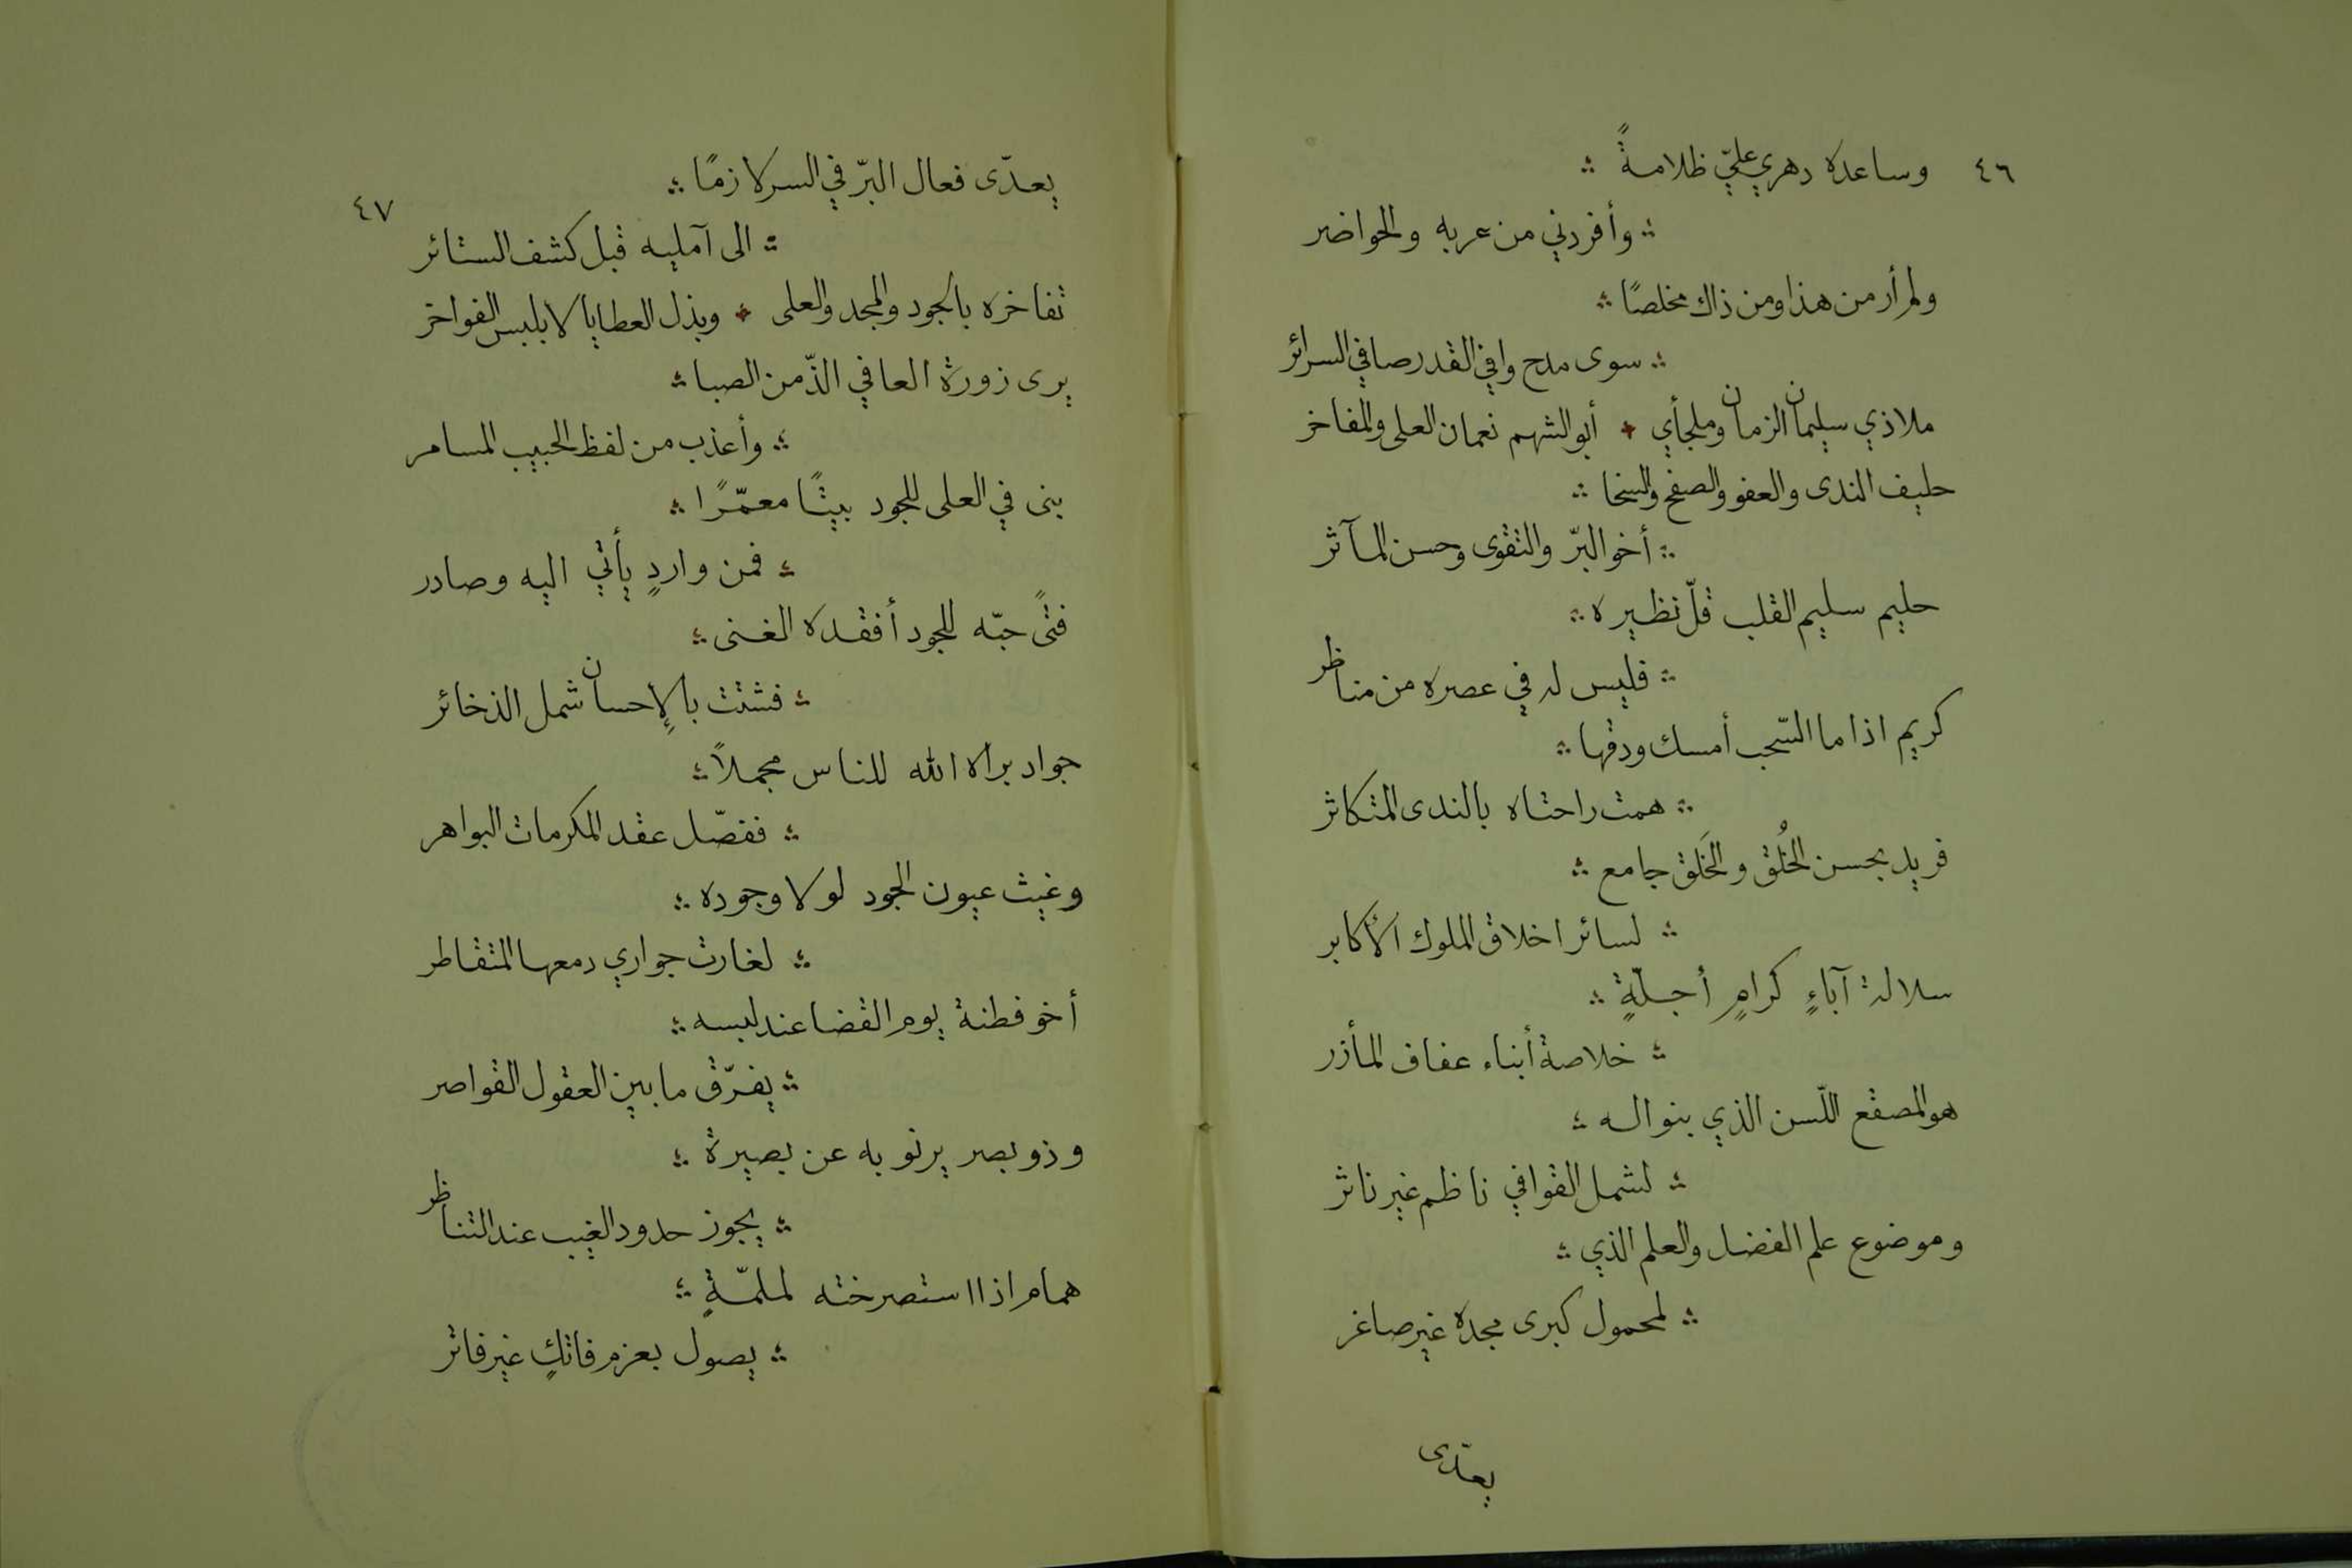 ٤٦
وساعده دهري عليّ ظلامةً ؞
؞ وأفردني من عربه والحواضر
ولم أر من هذا ومن ذاك مخلصًا ؞
؞ سوى مدح وافي القدر صافي السرائر
ملاذي سليمان الزمان وملجأي ؞ أبو الشهم نعمان العلى والمفاخر
حليف الندى والعفو والصفح والسخا ؞
؞ أخو البرّ والتقوى وحسن المآثر
حليم سليم القلب قلّ نظيره ؞
؞ فليس له في عصره من مناظر
كريم اذا ما السّحب أمسك ودقها ؞
؞ همت راحتاه بالندى المتكاثر
فريد بحسن الخُلق والخَلق جامع ؞
؞ لسائر اخلاق الملوك الأكابر
سلالة آباءٍ كرامٍ أجلّةٍ ؞
؞ خلاصة أبناء عفاف المأزر
هو المصقع اللّسن الذي بنواله ؞
؞ لشمل القوافي ناظم غير ناثر
وموضوع علم الفضل والعلم الذي ؞
؞ لمحمول كبرى مجده غير صاغر
يعدّى
٤٧
يعدّى فعال البرّ في السر لازمًا ؞
؞ الى آمليه قبل كشف الستائر
تفاخره بالجود والمجد والعلى ؞ وبذل العطايا لا بلبس الفواخر
يرى زورة العافي الذّ من الصبا ؞
؞ وأعذب من لفظ الحبيب المسامر
بنى في العلى للجود بيتًا معمّرًا ؞
؞ فمن واردٍ يأتي اليه وصادر
فتًى حبّه للجود أفقده الغنى ؞
؞ فشتت بالإحسان شمل الذخائر
جواد براه الله للناس مجملاً ؞
؞ ففصّل عقد المكرمات البواهر
وغيث عيون الجود لولا وجوده ؞
؞ لغارت جواري دمعها المتقاطر
أخو فطنة يوم القضا عند لبسه ؞
؞ يفرّق ما بين العقول القواصر
وذو بصر يرنو به عن بصيرة ؞
؞ يجوز حدود الغيب عند التناظر
همام اذا استصرخته لملمّةٍ ؞
؞ يصول بعزم فاتكٍ غير فاتر